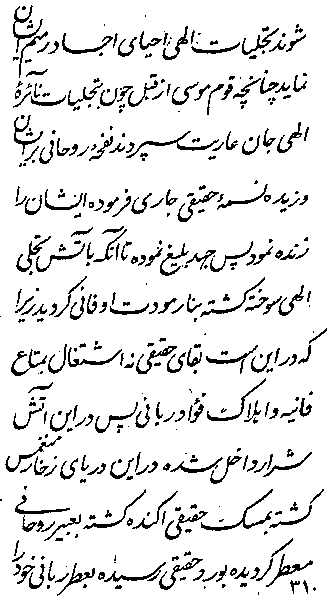 شوند تجلیات الهی احیای اجساد رمیم ایشان
نماید چنانچه قوم موسی از قبل چون بتجلیات نائرهٔ
الهی جان عاریت سپردند نفحهٔ روحانی برایشان
وزیده نسمهٔ حقیقی جاری فرموده ایشان را
زنده نمود پس جهد بلیغ نموده تا آنکه بآتش تجلی
الهی سوخته گشته بنار مودت او فانی گردید زیرا
که در این است بقای حقیقی نه اشتغال بمتاع
فانیه و اهلاک فؤاد ربانی پس در این آتش
شرار داخل شده در این دریای زخار منغمس
گشته بمسک حقیقی آکنده گشته بعبیر روحانی
معطر گردیده بورد حقیقی رسیده بعطر ربانی خود را
۳۱۰